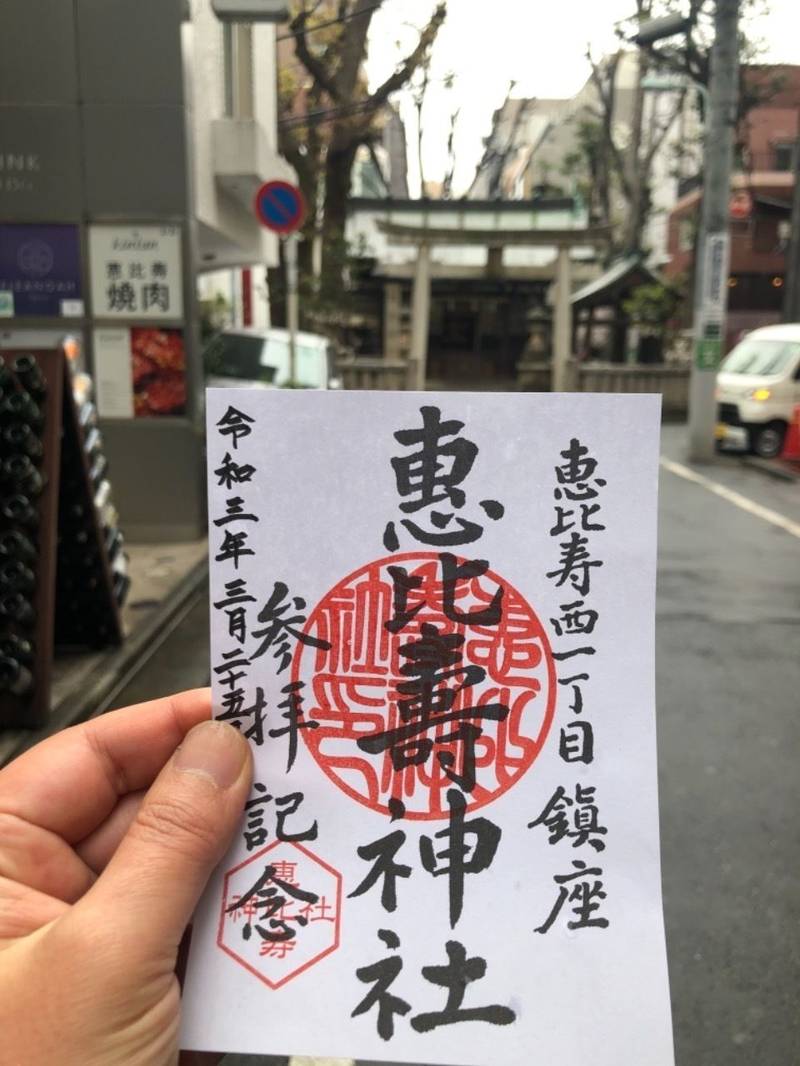 恵比寿西一丁目 鎮座
恵比壽神社
参拝記念
令和三年 三月二十五
恵比寿
神 社
恵比寿
焼肉